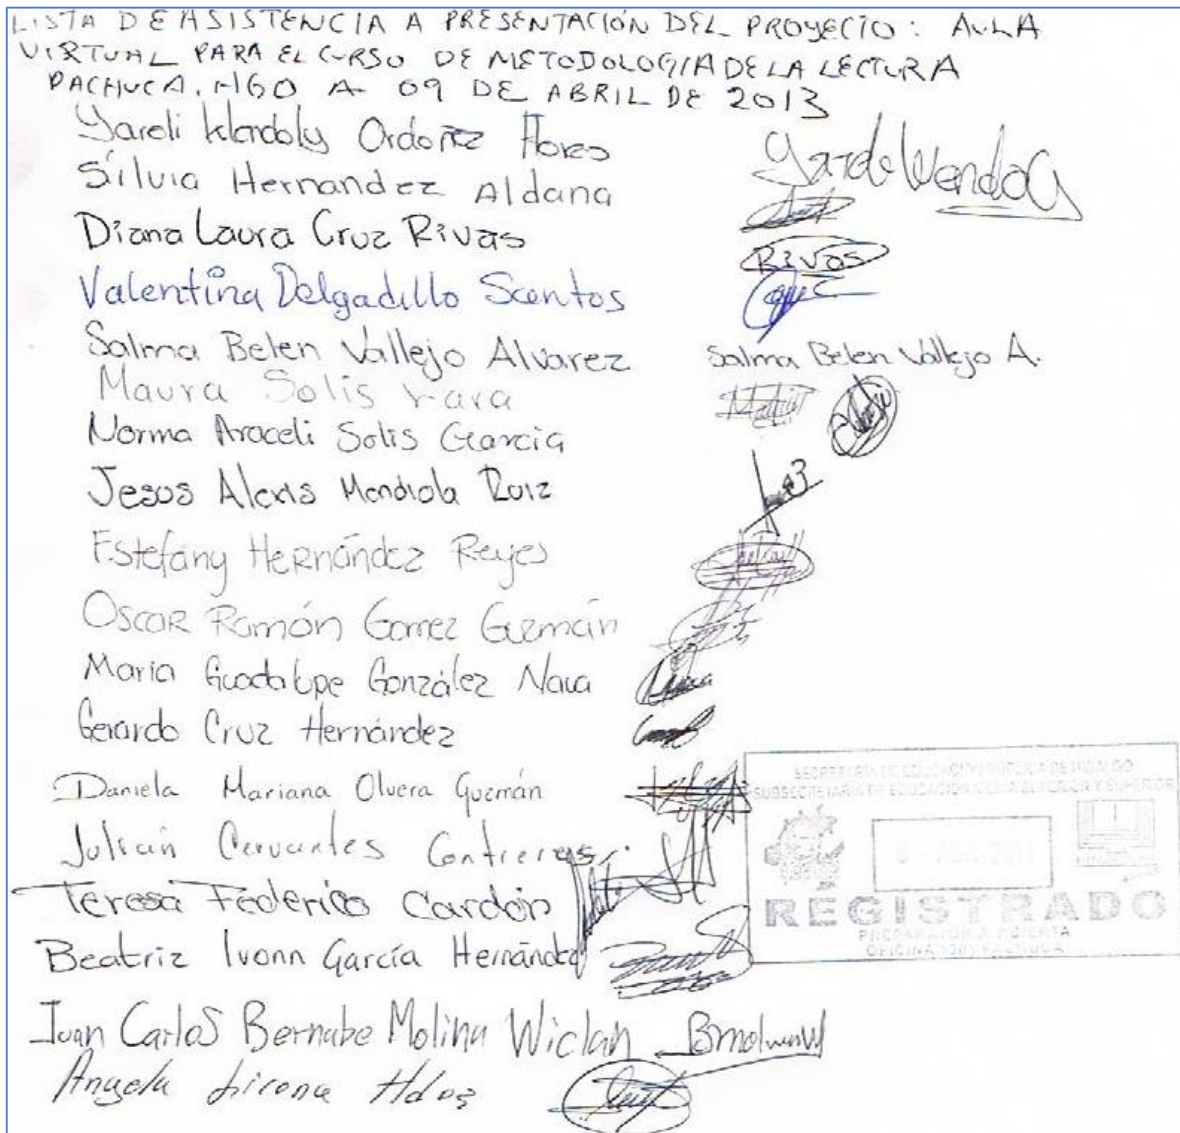 LISTA DE ASISTENCIA A PRESENTACIÓN DEL PROYECTO: AULA
VIRTUAL PARA EL CURSO DE METODOLOGIA DE LA LECTURA
PACHUCA, HGO A 09 DE ABRIL DE 2013
Yareli Ordoñez Flores
Silvia Hernandez Aldana
Diana Laura Cruz Rivas
RIVAS
Valentina Delgadillo Santos
Salma Belen Vallejo Alvarez Salma Belen Vallejo A.
Maura Solis Vara
Norma Araceli Solis Garcia
Jesus Alexis Mendiola Ruiz
Estefany Hernández Reyes
Oscar Ramón Gomez Guzmán
Maria Guadalupe González Nava
Gerardo Cruz Hernández
Daniela Mariana Olvera Guzmán
Julián Cervantes Contreras
Teresa Federico Cardón
Beatriz Ivonn García Hernández
Juan Carlos Bernabe Molina Wiclan
Angela Hdez
SECRETARÍA DE EDUCACIÓN PÚBLICA DE HIDALGO
SUBSECRETARIA DE EDUCACIÓN MEDIA SUPERIOR Y SUPERIOR
REGISTRADO
PREPARATORIA ABIERTA